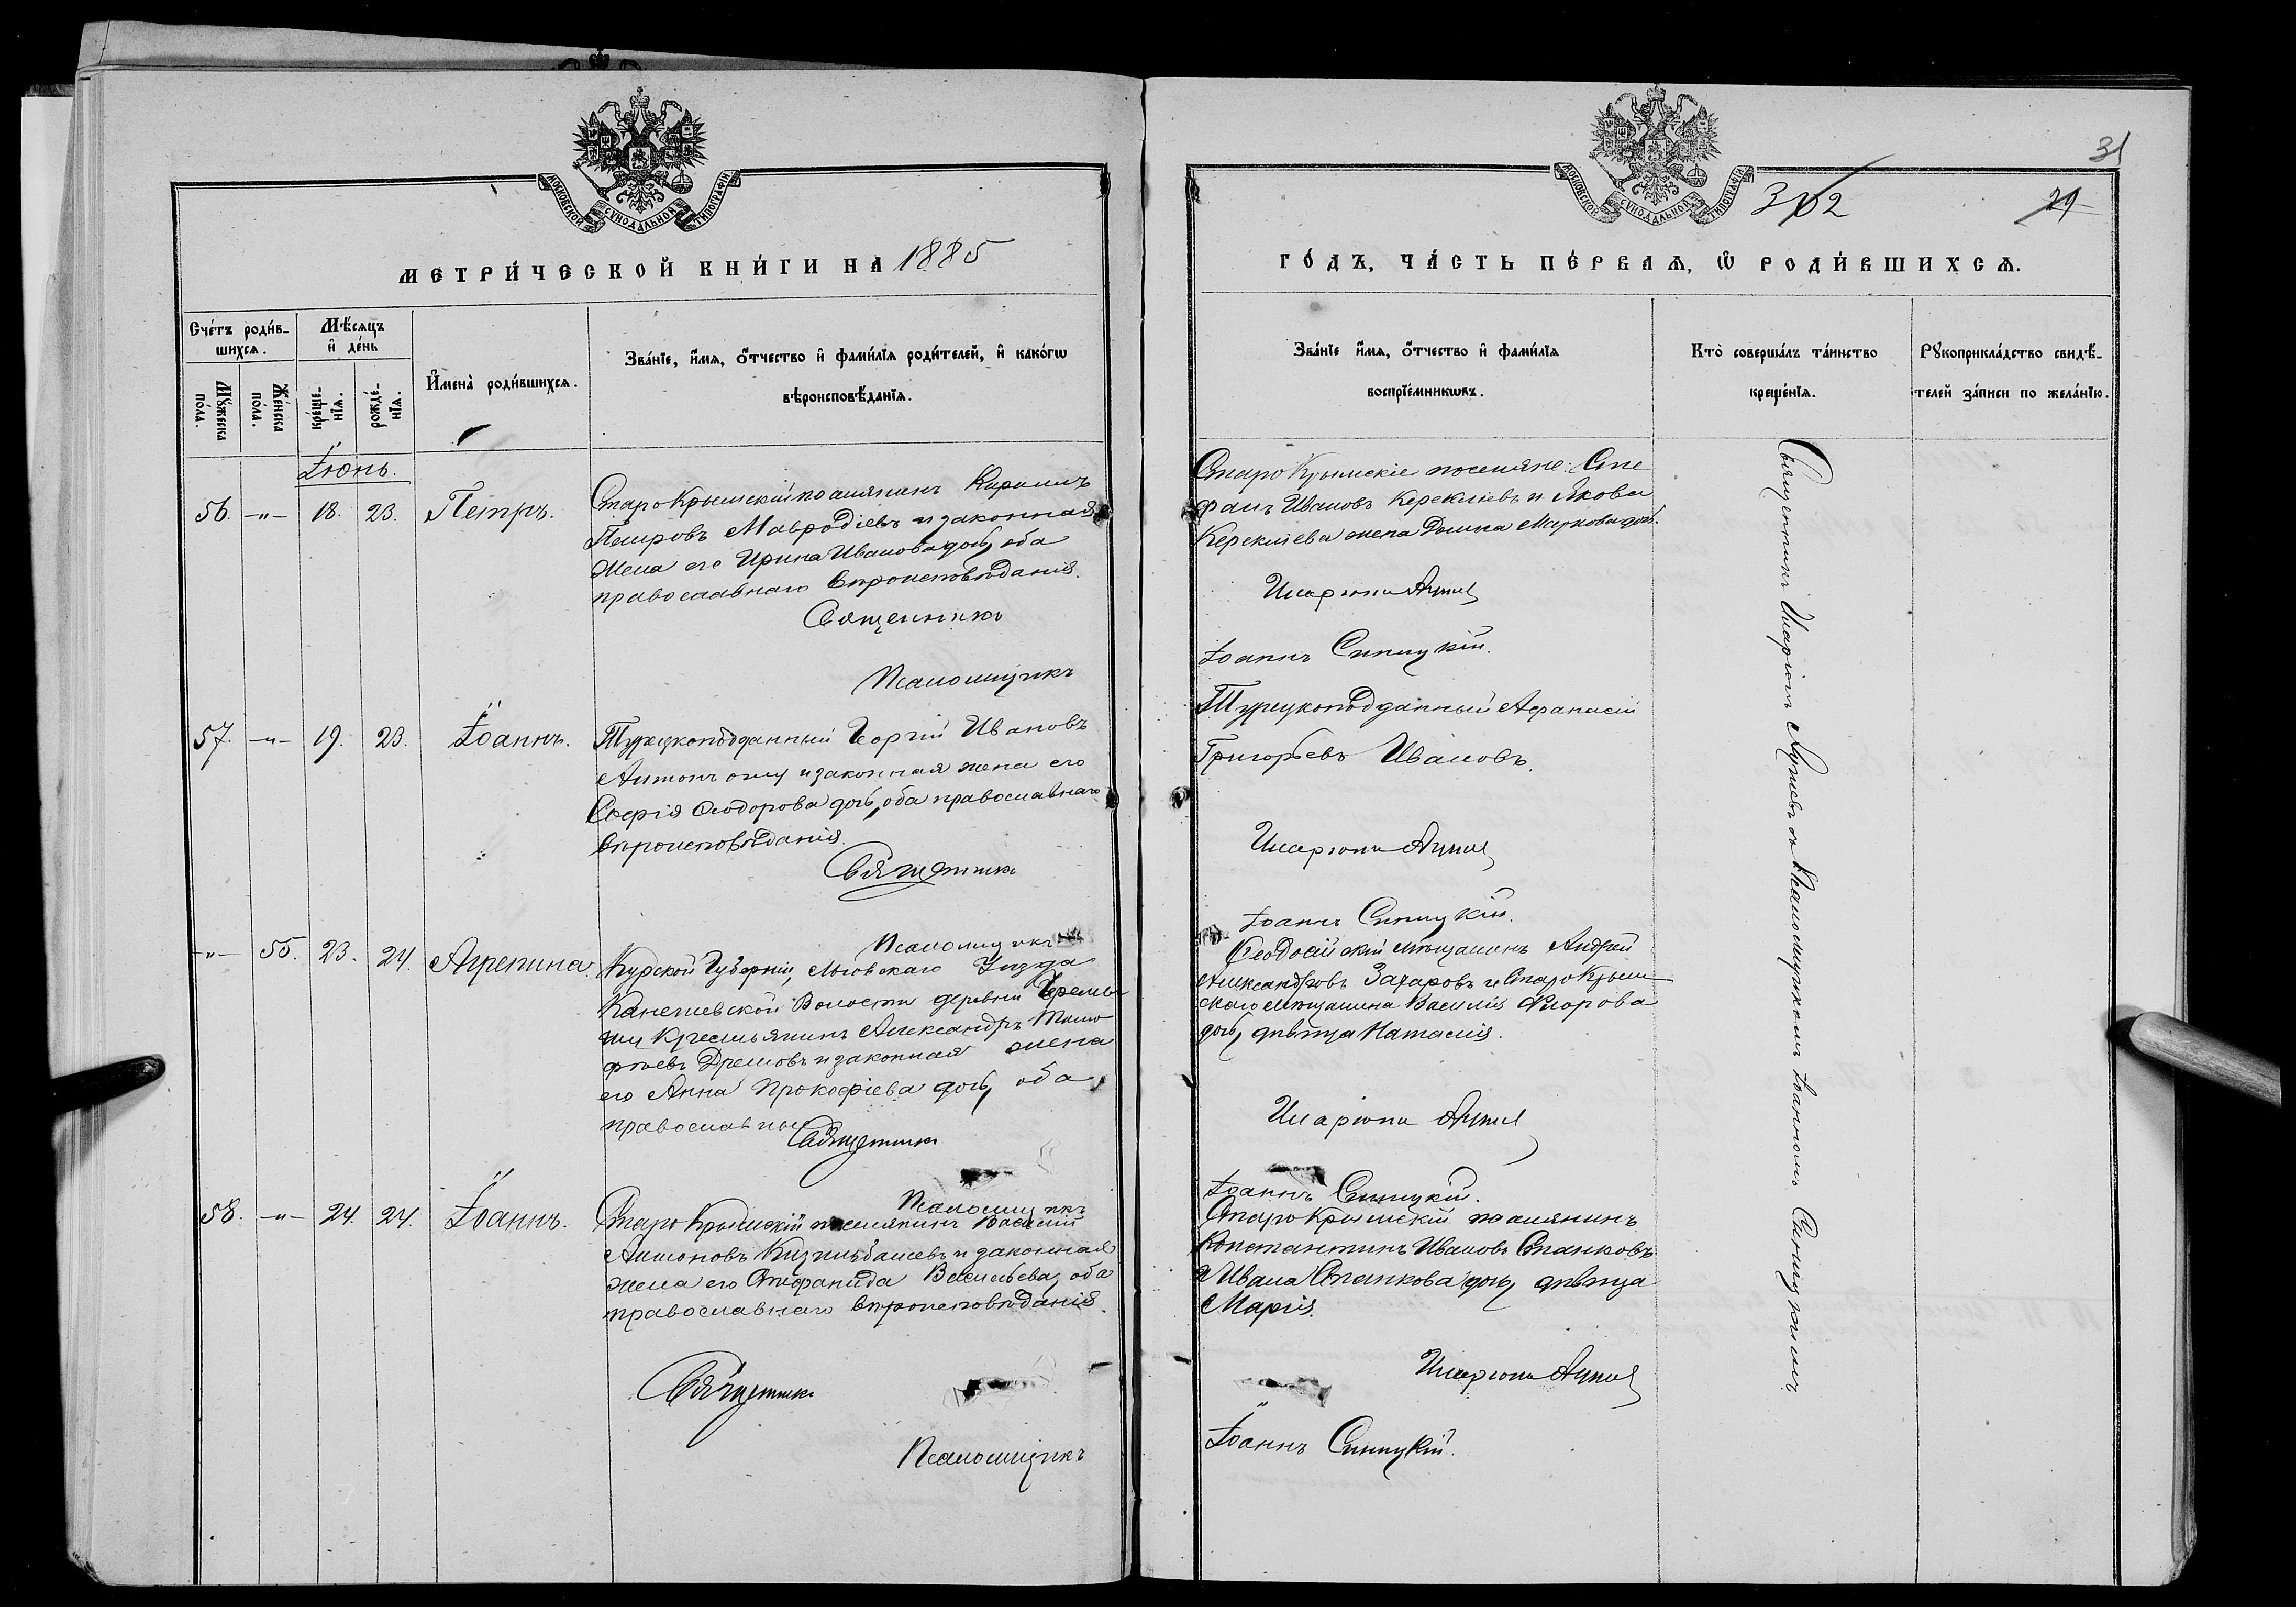 МОСКОВСКОЙ СѴНОДАЛЬНОЙ ТИПОГРАФІИ
МЕТРИ́ЧЕСКОЙ КНИ́ГИ НА 1885
Сче́тъ роди́в-
шихся.
Мѣ́сяцъ
и҆ де́нь
Мꙋ́жеска
по́ла.
Же́нска
по́ла.
кре́ще-
нїя.
рожде́-
нїя.
И҆мена̀ роди́вшихся.
Зва́нїе, и҆́мя, ѻ҆́тчество и҆ фами́лїя роди́телей, и҆ како́гѡ
вѣроисповѣ́данїя.
Іюнь.
56. -"- 18. 23. Петръ.
СтароКрымскій поселянинъ Кириллъ
Петровъ Мавродіевъ и законная
жена его Ирина Иванова дочь, оба
православнаго вѣроисповѣданія.
Священникъ
Псаломщикъ
57. -"- 19. 23. Іоаннъ.
Турецкоподданный Георгій Ивановъ
и законная жена его
Софія Ѳеодорова дочь, оба православнаго
вѣроисповѣданія.
Священникъ
Псаломщикъ
-"- 55. 23. 24. Агрепина.
Курской Губерніи, Льговскаго Уѣзда
Канышевской Волости деревни
крестьянинъ Александръ Тимо
фѣевъ Дремовъ и законная жена
его Анна Прокофіева дочь, оба
православные
Священникъ
Псаломщикъ
58. -"- 24. 24. Іоаннъ.
СтароКрымскій поселянинъ Василій
Антоновъ Кизильбашевъ и законная
жена его Стефанида Васильева, оба
православнаго вѣроисповѣданія.
Священникъ
Псаломщикъ
31
МОСКОВСКОЙ СѴНОДАЛЬНОЙ ТИПОГРАФІИ
302
29
ГО́ДЪ, ЧА́СТЬ ПЕ́РВАЯ, Ѡ҆ РОДИ́ВШИХСЯ.
Зва́нїе и҆́мя, ѻ҆́тчество и҆ фами́лїя
воспрїе́мникѡвъ.
Кто̀ соверша́лъ та́инство
креще́нїя.
Рꙋкоприкла́дство свидѣ́-
телей за́писи по жела́нїю.
СтароКрымскіе поселяне: Сте
фанъ Ивановъ Керекліевъ и Якова
Керекліева жена Домна Маркова дочь.
Иларіонъ Лупіевъ
Іоаннъ Синицкій.
Турецкоподданный Афанасій
Григорьевъ Ивановъ.
Иларіонъ Лупіевъ
Іоаннъ Синицкій.
Ѳеодосійскій мѣщанинъ Андрей
Александровъ Захаровъ и СтароКрым
скаго мѣщанина Василія Флорова
дочь, дѣвица Наталія.
Иларіонъ Лупіевъ
Іоаннъ Синицкій.
СтароКрымскій поселянинъ
Константинъ Ивановъ Станковъ
и Ивана Станкова дочь, дѣвица
Марія.
Иларіонъ Лупіевъ
Іоаннъ Синицкій.
Священникъ Иларіонъ Лупіевъ съ Псаломщикомъ Іоанномъ Синицкимъ